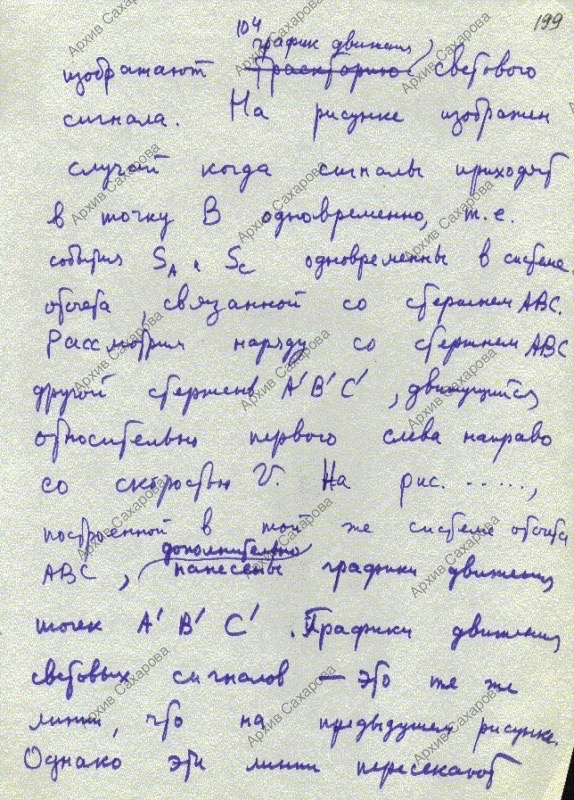 104
199
график движения
изображают траекторию светового
сигнала. На рисунке изображен
случай когда сигналы приходят
в точку B одновременно, т.е.
события S_A и S_C одновременны в системе
отсчета, связанной со стержнем ABC.
Рассмотрим наряду со стержнем ABC
другой стержень A' B' C', движущийся
относительно первого слева направо
со скоростью V. На рис. ......,
построенной в той же системе отсчета
дополнительно
ABC, нанесены графики движения
точек A' B' C'. Графики движения
световых сигналов — это те же
линии, что на предыдущем рисунке.
Однако эти линии пересекают
Архив Сахарова